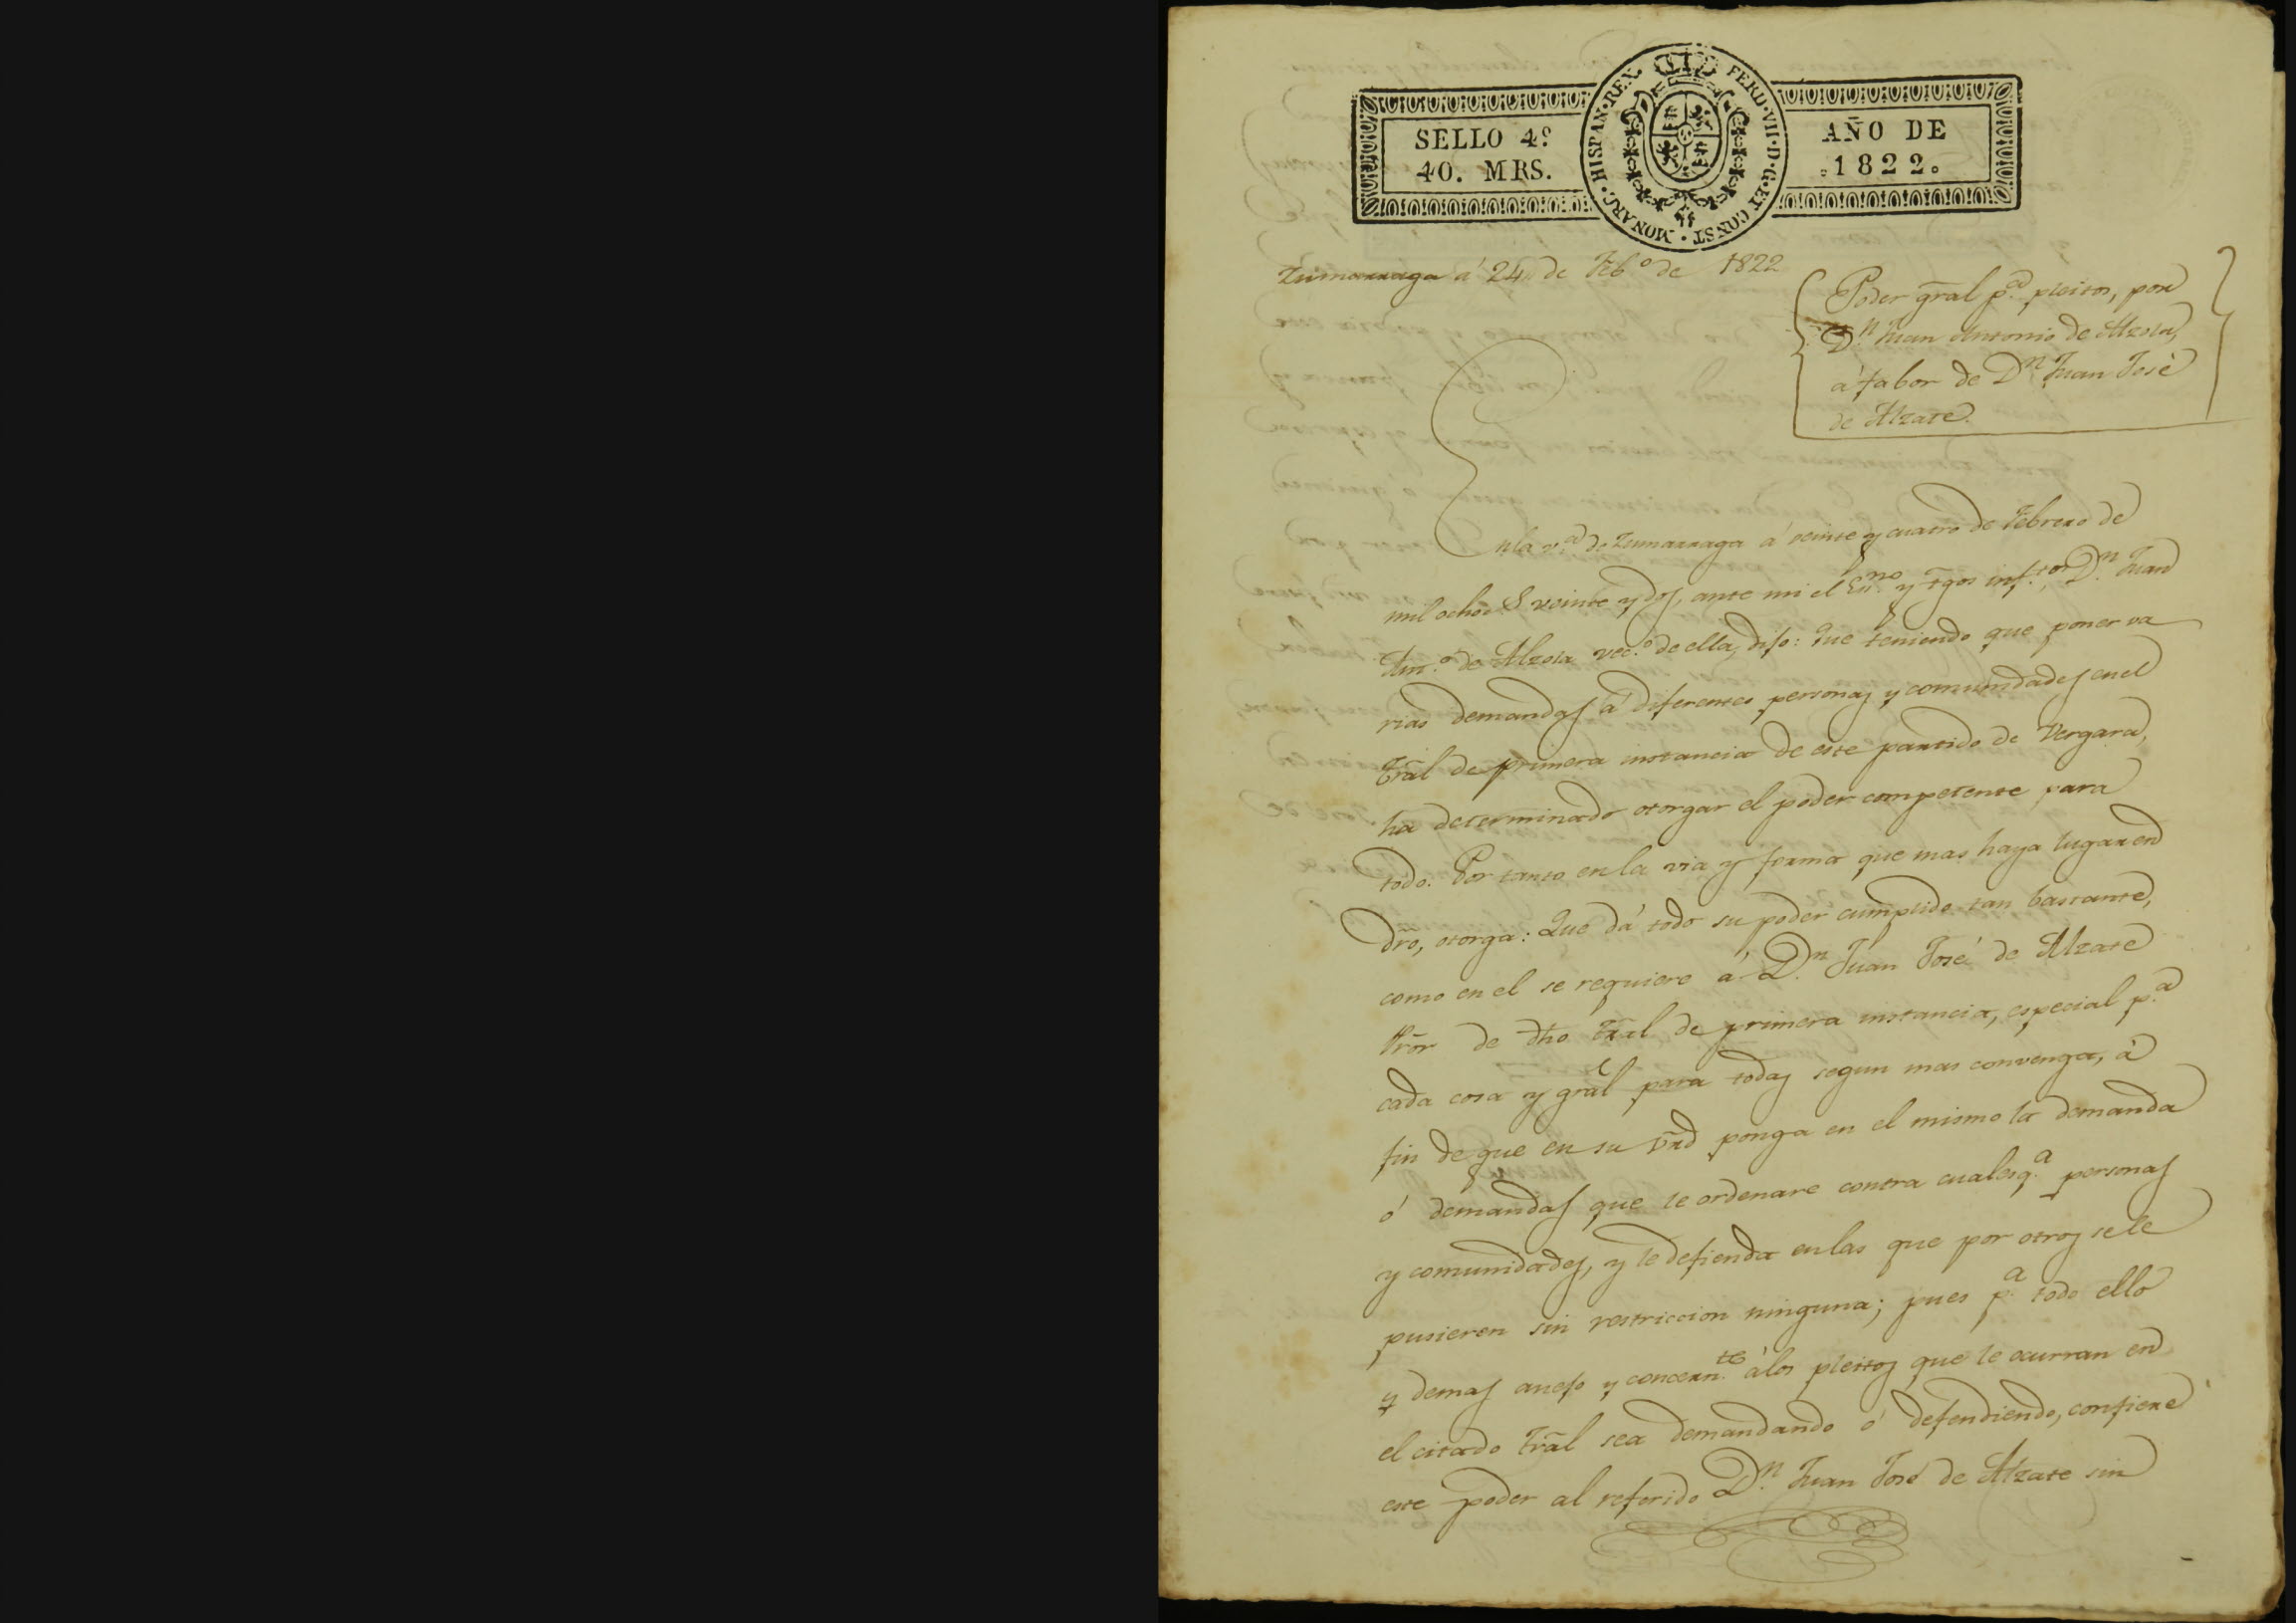 SELLO 4º
40. MRS.
HISPAN·REX. FERD·VII·D·G·ET CONST·MONARC·
AÑO DE
1822.
Zumarraga á 24 de Febº de 1822
Poder gral pª pleitos, por
Dn Juan Antonio de Alzola,
á fabor de Dn Juan José
de Alzate.
En la vª de Zumarraga á veinte y cuatro de Febrero de
mil ochocs veinte y dos, ante mi el Essno y tgos inftos Dn Juan
Antº de Alzola vecº de ella, dijo: Que teniendo que poner va
rias demandas á diferentes personas y comunidades en el
Tral de primera instancia de este partido de Vergara,
ha determinado otorgar el poder competente para
todo. Por tanto en la via y forma que mas haya lugar en
dro, otorga: Que dá todo su poder cumplido tan bastante,
como en el se requiere á Dn Juan José de Alzate
Pror de dho Tral de primera instancia, especial pª
cada cosa y gral para todas segun mas convenga, á
fin de que en su vrd ponga en el mismo la demanda
ó demandas que le ordenare contra cualesqª personas
y comunidades, y le defienda en las que por otros se le
pusieren sin restriccion ninguna; pues pª todo ello
y demas anejo y concernte á los pleitos que le ocurran en
el citado Tral sea demandando ó defendiendo, confiere
este poder al referido Dn Juan José de Alzate sin